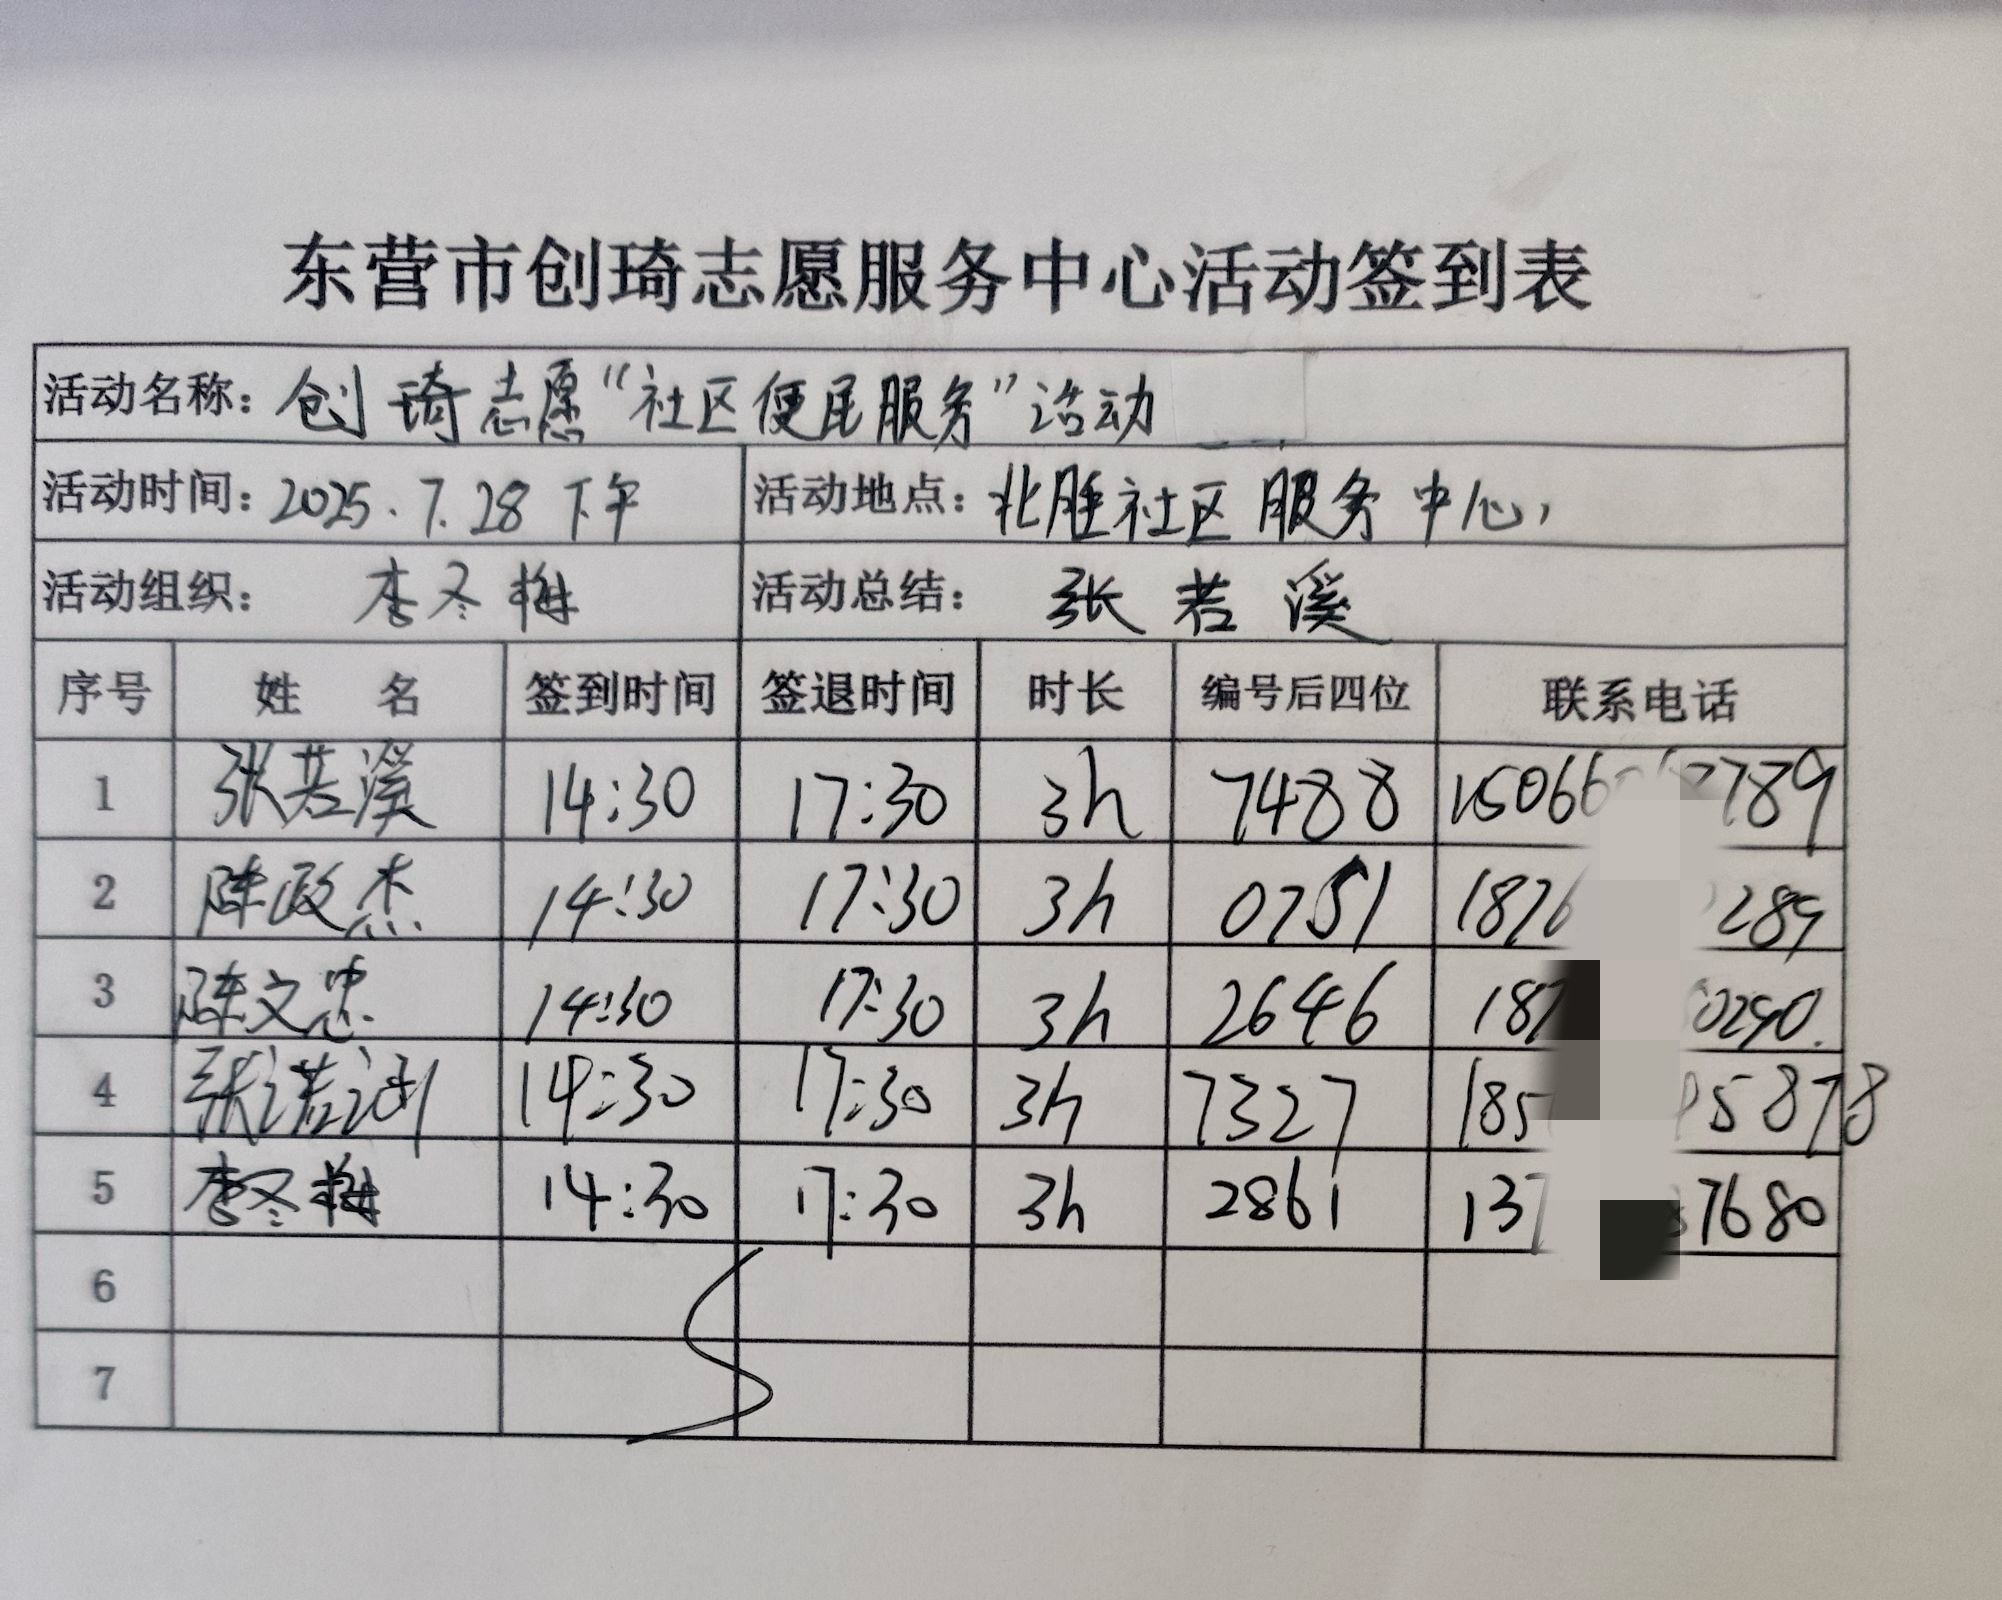 东营市创琦志愿服务中心活动签到表
活动名称：创琦志愿“社区便民服务”活动
活动时间：2025.7.28 下午 活动地点：北胜社区服务中心
活动组织：李冬梅 活动总结：张若溪
序号 姓名 签到时间 签退时间 时长 编号后四位 联系电话
1 张若溪 14:30 17:30 3h 7488 15066 789
2 陈政杰 14:30 17:30 3h 0751 1876 289
3 陈文忠 14:30 17:30 3h 2646 187 0290.
4 张诺 14:30 17:30 3h 7327 185 5878
5 李冬梅 14:30 17:30 3h 2861 137 7680
6
7